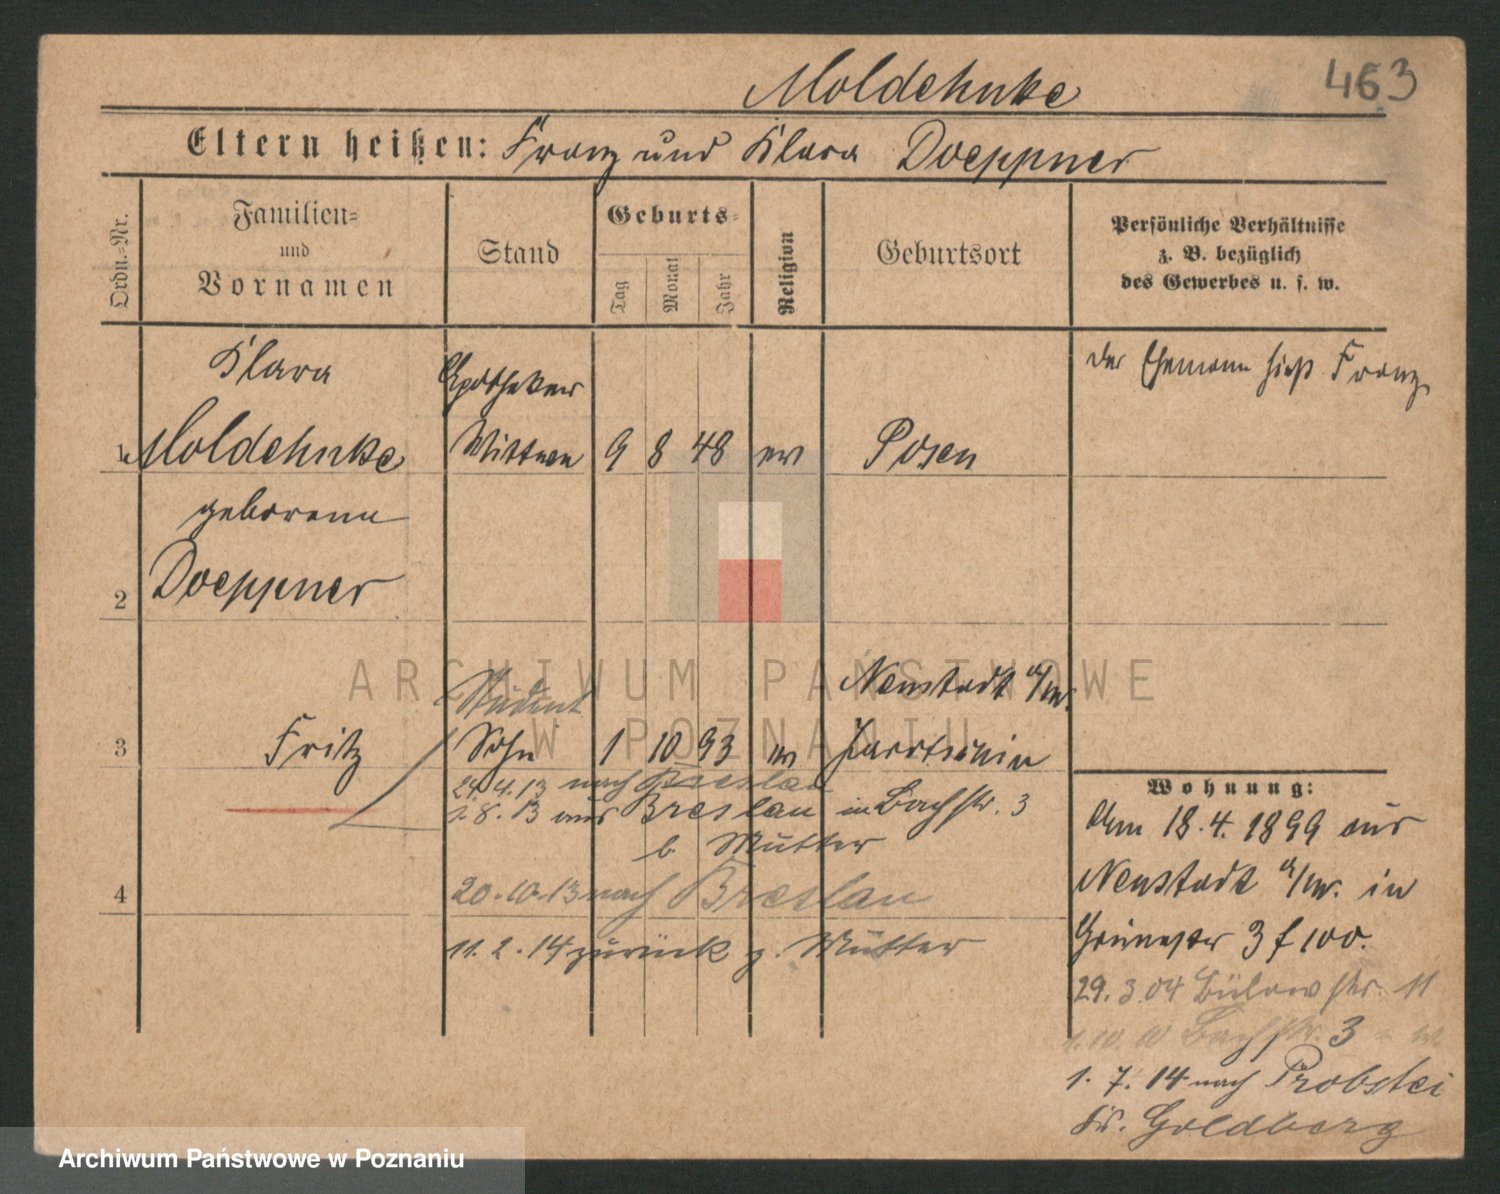 Moldehnke
463
Eltern heißen: Franz und Klara Doeppner
Ordn.-Nr.
Familien-
und
Vornamen
Stand
Geburts-
Tag
Monat
Jahr
Religion
Geburtsort
Persönliche Verhältnisse
z. B. bezüglich
des Gewerbes u. s. w.
Klara
Apotheker
der Ehemann hieß Franz
1
Moldehnke
Wittwe
9
8
48
ev
Posen
geborene
2
Doeppner
Student
Neustadt a/W.
3
Fritz
Sohn
1
10
93
ev
Jarotschin
24.4.13 nach Breslau
1.8.13 aus Breslau in Bachstr. 3
b. Mutter
4
20.10.13 nach Breslau
11.2.14 zurück z. Mutter
Wohnung:
Am 18.4.1899 aus
Neustadt a/W. in
3 f 100.
29.3.04 Bülowstr. 11
Bachstr. 3
1.7.14 nach Probstei
Kr. Goldberg
ARCHIWUM PAŃSTWOWE
W POZNANIU
Archiwum Państwowe w Poznaniu